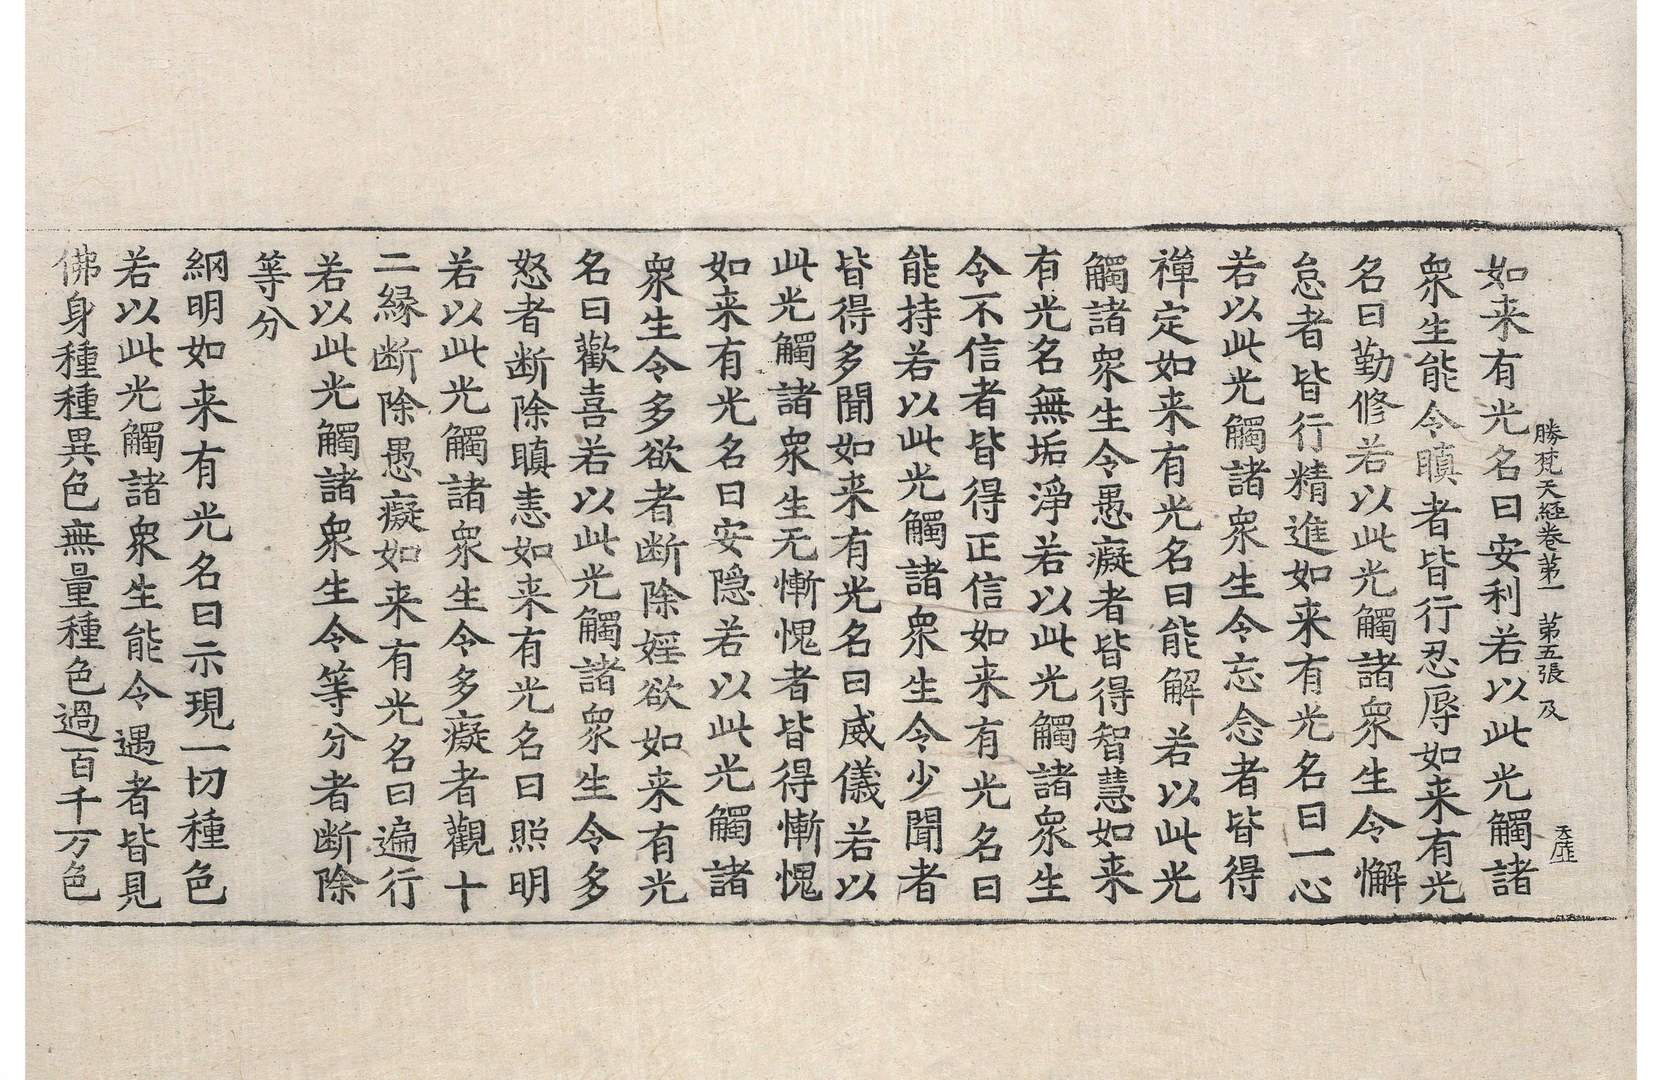 勝梵天經卷第一　第五張　及
如来有光名曰安利若以此光觸諸
衆生能令瞋者皆行忍辱如来有光
名曰勤修若以此光觸諸衆生令懈
怠者皆行精進如来有光名曰一心
若以此光觸諸衆生令忘念者皆得
禪定如来有光名曰能解若以此光
觸諸衆生令愚癡者皆得智慧如来
有光名無垢淨若以此光觸諸衆生
令不信者皆得正信如来有光名曰
能持若以此光觸諸衆生令少聞者
皆得多聞如来有光名曰威儀若以
此光觸諸衆生无慚愧者皆得慚愧
如来有光名曰安隠若以此光觸諸
衆生令多欲者断除婬欲如来有光
名曰歡喜若以此光觸諸衆生令多
怒者断除瞋恚如来有光名曰照明
若以此光觸諸衆生令多癡者觀十
二縁断除愚癡如来有光名曰遍行
若以此光觸諸衆生令等分者断除
等分
網明如来有光名曰示現一切種色
若以此光觸諸衆生能令遇者皆見
佛身種種異色無量種色過百千万色